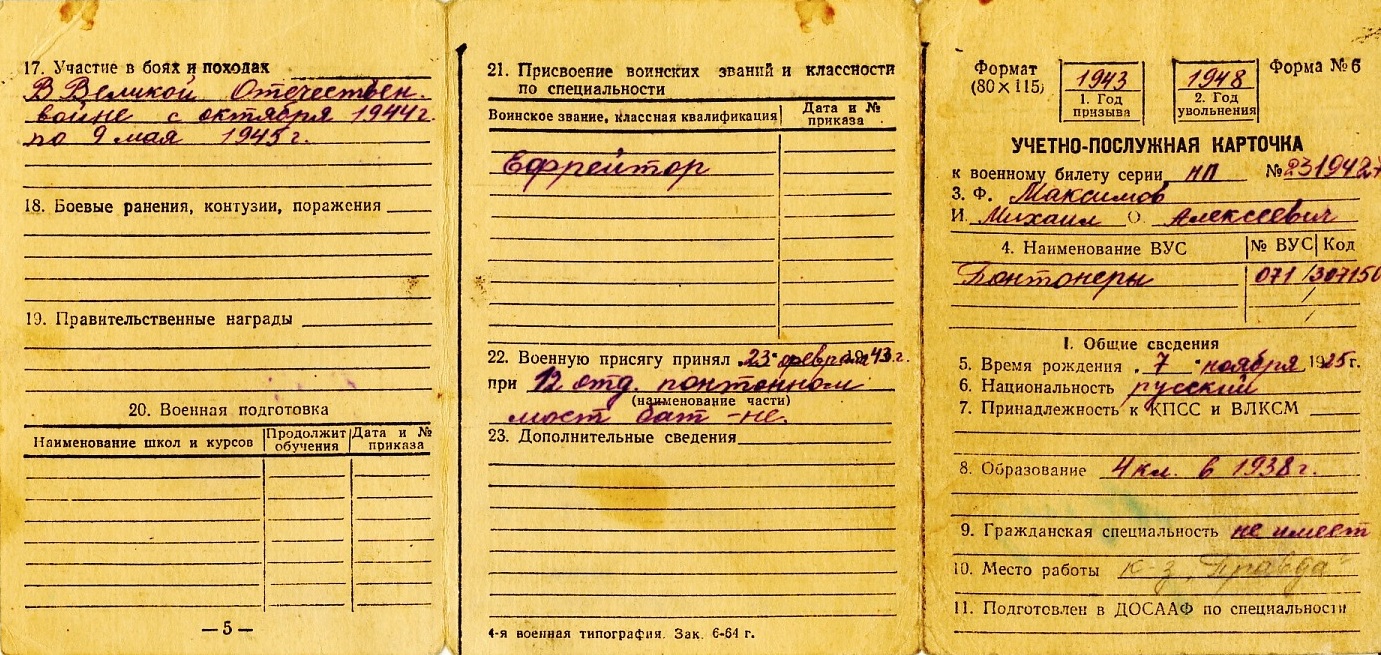 17. Участие в боях и походах
В Великой Отечествен.
войне с октября 1944г.
по 9 мая 1945г.
18. Боевые ранения, контузии, поражения
19. Правительственные награды
20. Военная подготовка
Наименование школ и курсов
Продолжит обучения
Дата и № приказа
— 5 —
21. Присвоение воинских званий и классности
по специальности
Воинское звание, классная квалификация
Дата и № приказа
Ефрейтор
22. Военную присягу принял 23 февраля 1943.г.
при 12 отд. понтонном
(наименование части)
мост бат-не.
23. Дополнительные сведения
4-я военная типография. Зак. 6-64 г.
Формат
(80×115)
1943
1. Год призыва
1948
2. Год увольнения
Форма № 6
УЧЕТНО-ПОСЛУЖНАЯ КАРТОЧКА
к военному билету серии НП № 2319427
3. Ф. Максимов
И. Михаил О. Алексеевич
4. Наименование ВУС № ВУС Код
Понтонеры 071 307150
I. Общие сведения
5. Время рождения 7 ноября 1925г.
6. Национальность русский
7. Принадлежность к КПСС и ВЛКСМ
8. Образование 4 кл. в 1938г.
9. Гражданская специальность не имеет
10. Место работы к-з „Правда"
11. Подготовлен в ДОСААФ по специальности